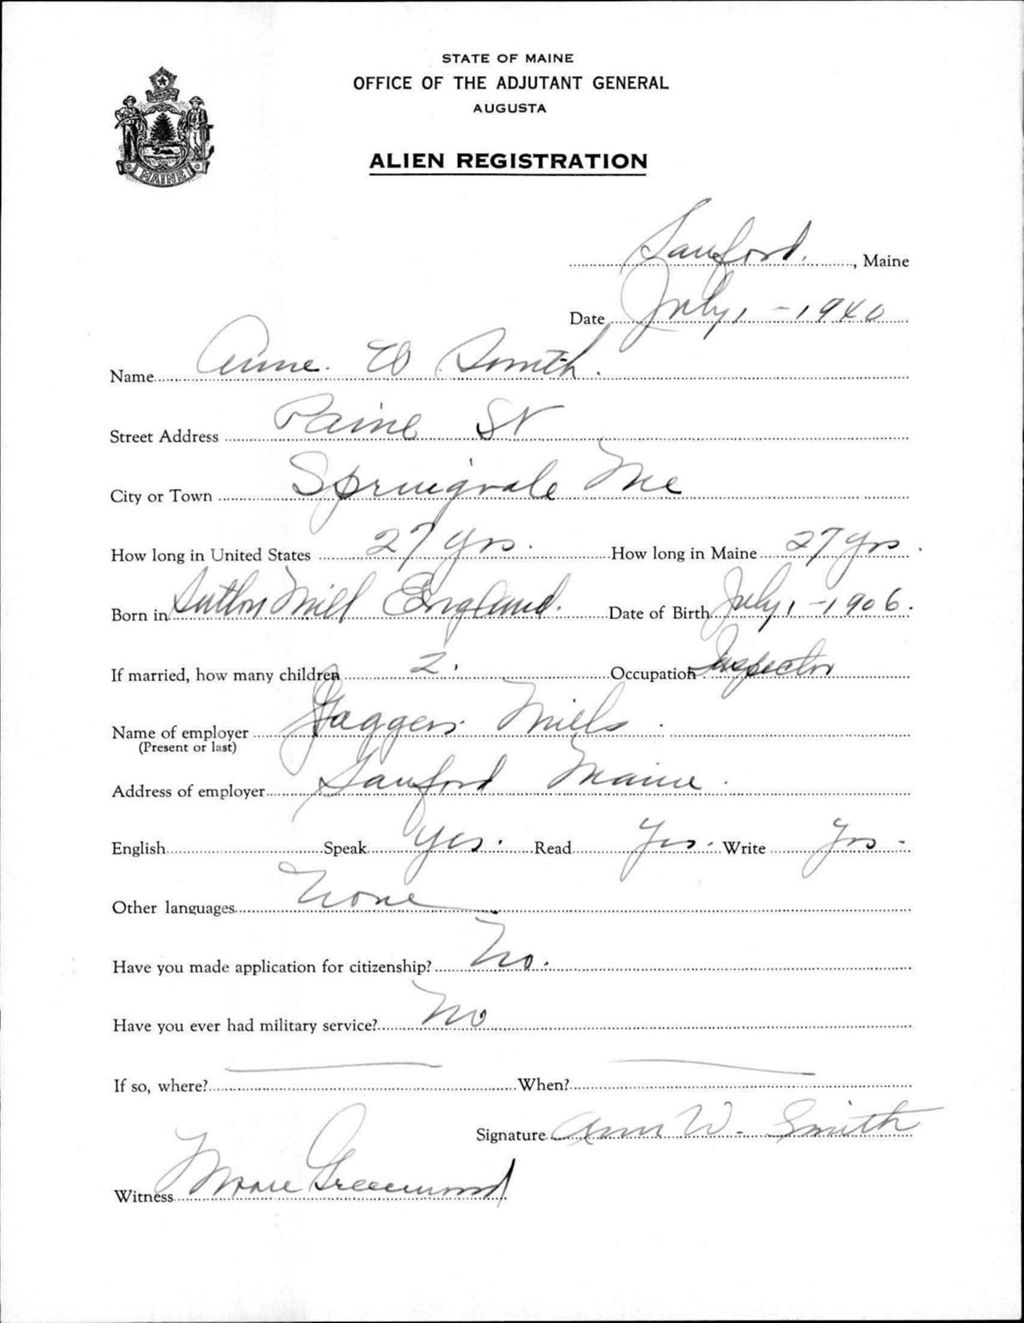 STATE OF MAINE
OFFICE OF THE ADJUTANT GENERAL
AUGUSTA
MAINE
ALIEN REGISTRATION
Sanford, Maine
Date July 1, - 1940
Name Anne W Smith.
Street Address Paine St
City or Town Springvale Me
How long in United States 27 yrs. How long in Maine 27 yrs.
Born in Sutton Mill England. Date of Birth July 1, - 1906.
If married, how many children 2. Occupation Inspector
Name of employer Jaggers Mills.
(Present or last)
Address of employer Sanford Maine.
English Speak Yes. Read Yes. Write Yes.
Other languages None
Have you made application for citizenship? No.
Have you ever had military service? No
If so, where? — When? —
Signature Ann W. Smith
Witness Greenwood